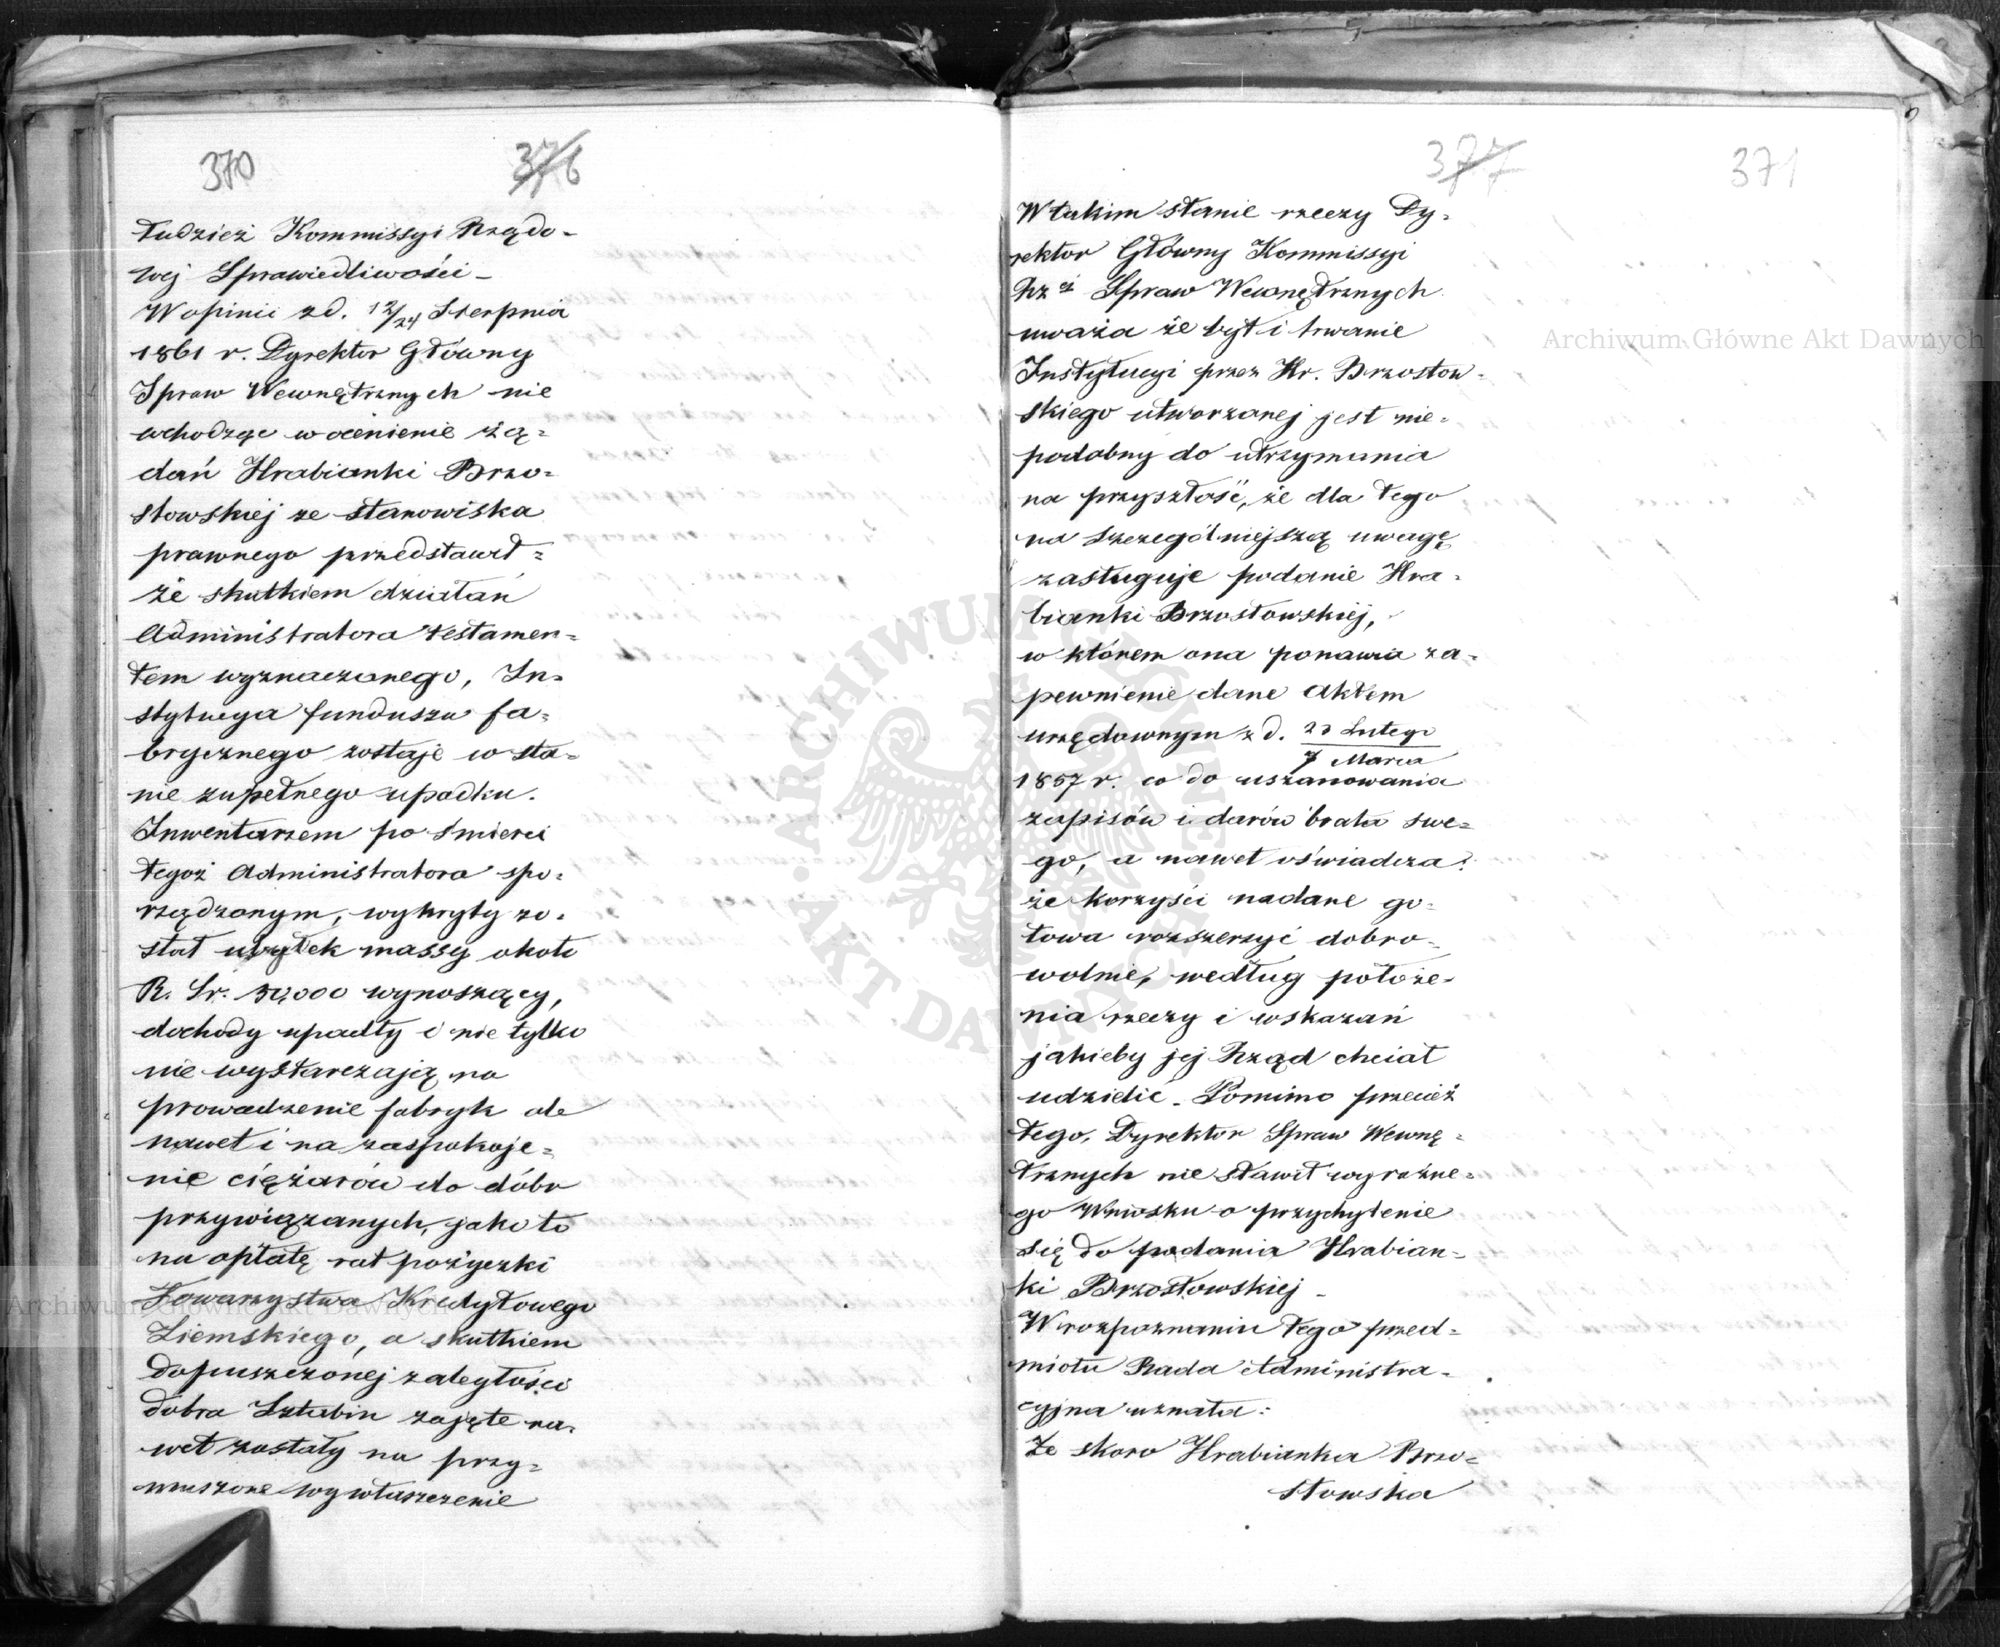 370
376
tudzież Kommissyi Rządo=
wej Sprawiedliwości_
W opinii z d. 12/24 Sierpnia
1861 r. Dyrektor Główny
Spraw Wewnętrznych nie
wchodząc w ocenienie żą=
dań Hrabianki Brzo=
stowskiej ze stanowiska
prawnego przedstawił=
że skutkiem działań
Administratora testamen=
tem wyznaczonego, In=
stytucya funduszu fa=
brycznego zostaje w sta=
nie zupełnego upadku.
Inwentarzem po śmierci
tegoż Administratora spo=
rządzonym, wykryty zo=
stał ubytek massy około
R. Sr. 30,000 wynoszący,
dochody upadły i nie tylko
nie wystarczają na
prowadzenie fabryk ale
nawet i na zaspokoje=
nie ciężarów do dóbr
przywiązanych, jako to
na opłatę rat pożyczki
Towarzystwa Kredytowego
Ziemskiego, a skutkiem
dopuszczonej zaległości
dobra Sztabin zajęte na=
wet zostały na przy=
muszone wywłaszczenie
377
371
W takim stanie rzeczy Dy=
rektor Główny Kommissyi
Rzej Spraw Wewnętrznych
uważa że byt i trwanie
Instytucyi przez Hr. Brzostow=
skiego utworzonej jest nie=
podobny do utrzymania
na przyszłość, że dla tego
na szczególniejszą uwagę
zasługuje podanie Hra=
bianki Brzostowskiej,
w którem ona ponawia za=
pewnienie dane Aktem
urzędownym z d. 23 Lutego
7 Marca
1857 r. co do uszanowania
zapisów i darów brata swe=
go, a nawet oświadcza:
że korzyści nadane go=
towa rozszerzyć dobro=
wolnie, według położe=
nia rzeczy i wskazań
jakieby jej Rząd chciał
udzielić_ Pomimo przecież
tego, Dyrektor Spraw Wewnę=
trznych nie stawił wyraźne=
go Wniosku o przychylenie
się do podania Hrabian=
ki Brzostowskiej_
W rozpoznaniu tego przed=
miotu Rada Administra=
cyjna uznała:
Że skoro Hrabianka Brzo=
stowska
Archiwum Główne Akt Dawnych
Archiwum Główne Akt Dawnych
ARCHIWUM GŁÓWNE AKT DAWNYCH